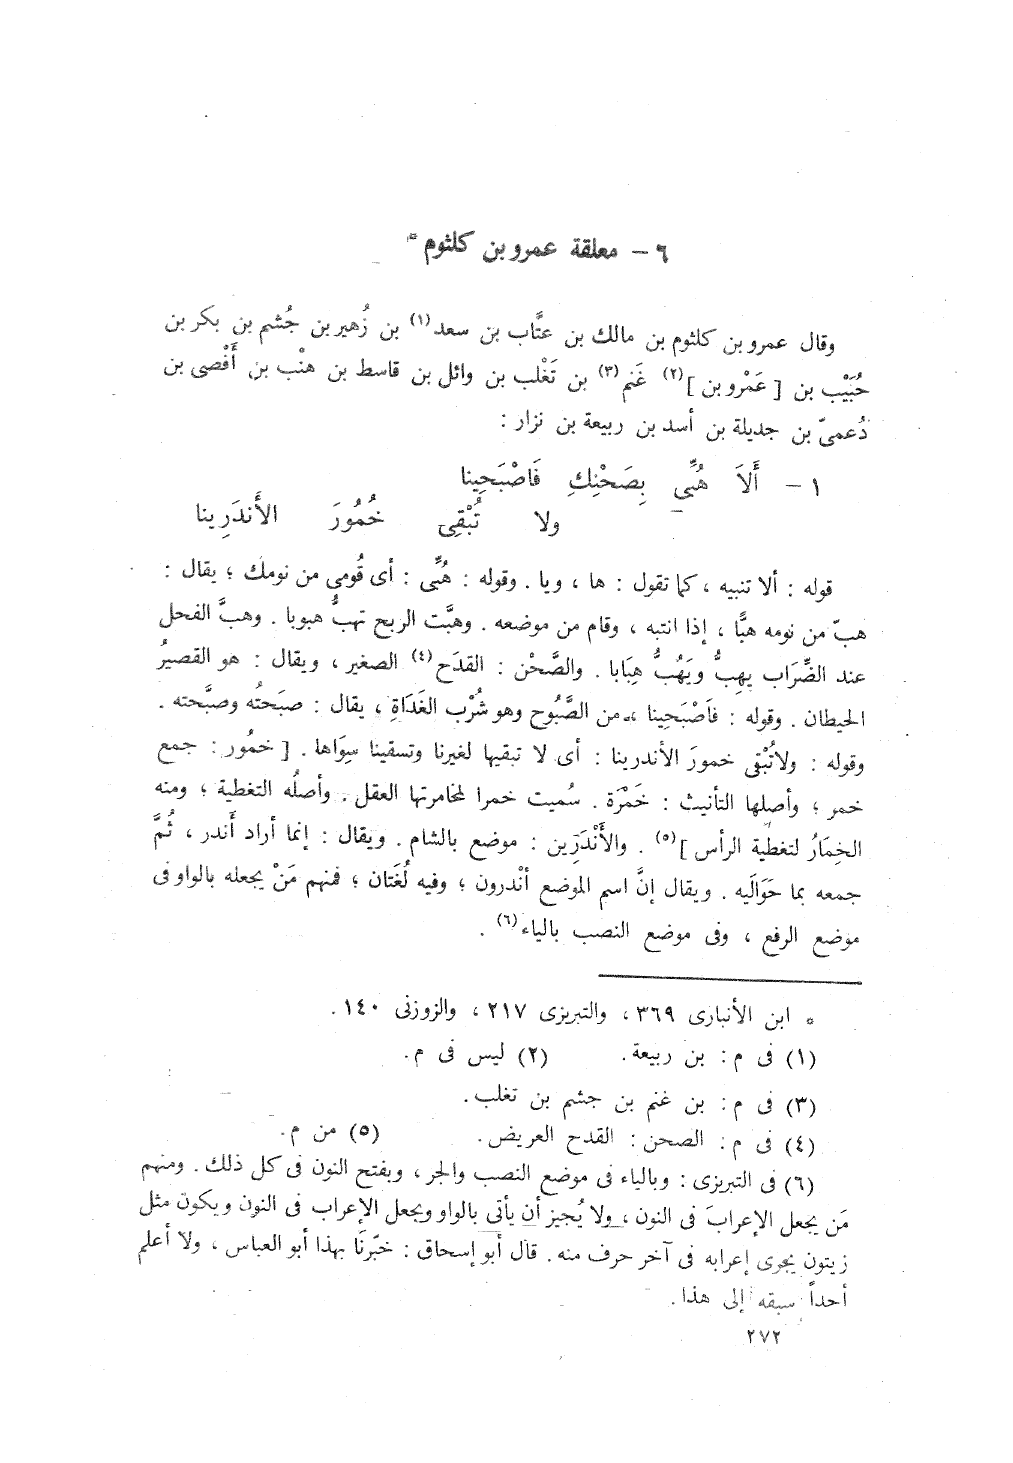 ٦ – معلقة عمرو بن كلثوم *
وقال عمرو بن كلثوم بن مالك بن عتَّاب بن سعد(١) بن زُهير بن جُشم بن بكر بن
حُبَيْب بن [ عَمْرو بن ](٢) غَنم(٣) بن تَغْلب بن وائل بن قاسط بن هنْب بن أَفْصى بن
دُعمىّ بن جديلة بن أسد بن ربيعة بن نزار :
١ – أَلاَ هُبِّى بِصَحْنِكِ فَاصْبَحِينا
ولا تُبْقِى خُمُورَ الأَندَرِينا
قوله : ألا تنبيه ، كما تقول : ها ، ويا . وقوله : هُبِّى : أى قُومى من نومك ؛ يقال :
هبّ من نومه هبًّا ، إذا انتبه ، وقام من موضعه . وهبَّت الريح تهبُّ هبوبا . وهبَّ الفحل
عند الضِّرَاب يهِبُّ ويَهُبُّ هِبَابا . والصَّحْن : القدَح(٤) الصغير ، ويقال : هو القصيرُ
الحيطان . وقوله : فاَصْبَحِينا ، من الصَّبُوح وهو شُرْب الغَدَاةِ ، يقال : صبَحتُه وصبَّحته .
وقوله : ولاتُبْقى خمورَ الأندرينا : أى لا تبقيها لغيرنا وتسقينا سِوَاها . [ خمُور : جمع
خمر ؛ وأصلها التأنيث : خَمْرَة . سُميت خمرا لمخامرتها العقل . وأصلُه التغطية ؛ ومنه
الخِمَارُ لتغطية الرأس ](٥) . والأَنْدَرِين : موضع بالشام . ويقال : إنما أراد أَندر ، ثُمَّ
جمعه بما حَوَالَيه . ويقال إنَّ اسم الموضع أنْدرون ؛ وفيه لُغَتَان ؛ فمنهم مَنْ يجعله بالواو فى
موضع الرفع ، وفى موضع النصب بالياء(٦) .
* ابن الأنبارى ٣٦٩ ، والتبريزى ٢١٧ ، والزوزنى ١٤٠ .
(١) فى م : بن ربيعة . (٢) ليس فى م .
(٣) فى م : بن غنم بن جشم بن تغلب .
(٤) فى م : الصحن : القدح العريض . (٥) من م .
(٦) فى التبريزى : وبالياء فى موضع النصب والجر ، وبفتح النون فى كل ذلك . ومنهم
مَن يجعل الإعرابَ فى النون ، ولا يُجيز أن يأتى بالواو ويجعل الإعراب فى النون ويكون مثل
زيتون يجرى إعرابه فى آخر حرف منه . قال أبو إسحاق : خبّرنَا بهذا أبو العباس ، ولا أعلم
أحداً سبقه إلى هذا .
٢٧٢